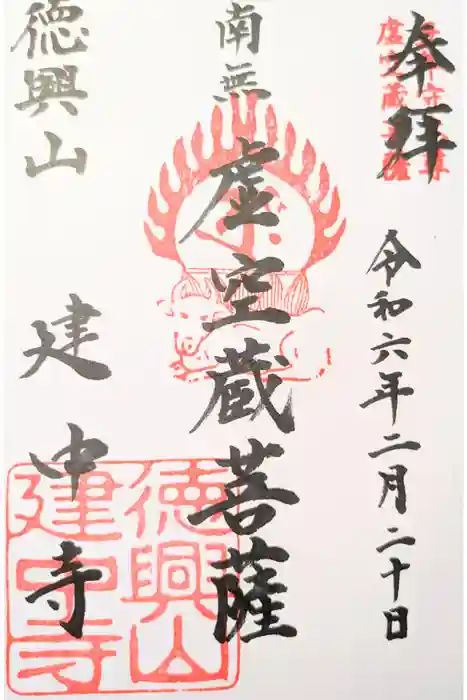 奉拝
令和六年二月二十日
南無
虚空蔵菩薩
徳興山
建中寺
徳興山
建中寺